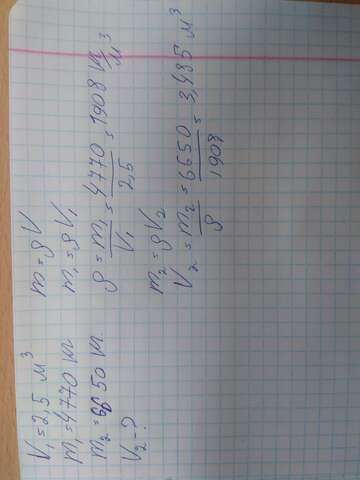 V₁=2,5 м³
m₁=4770 кг
m₂=6650 кг
V₂-?
m=ρV
m₁=ρV₁
ρ=m₁/V₁=4770/2,5=1908 кг/м³
m₂=ρV₂
V₂=m₂/ρ=6650/1908=3,485 м³